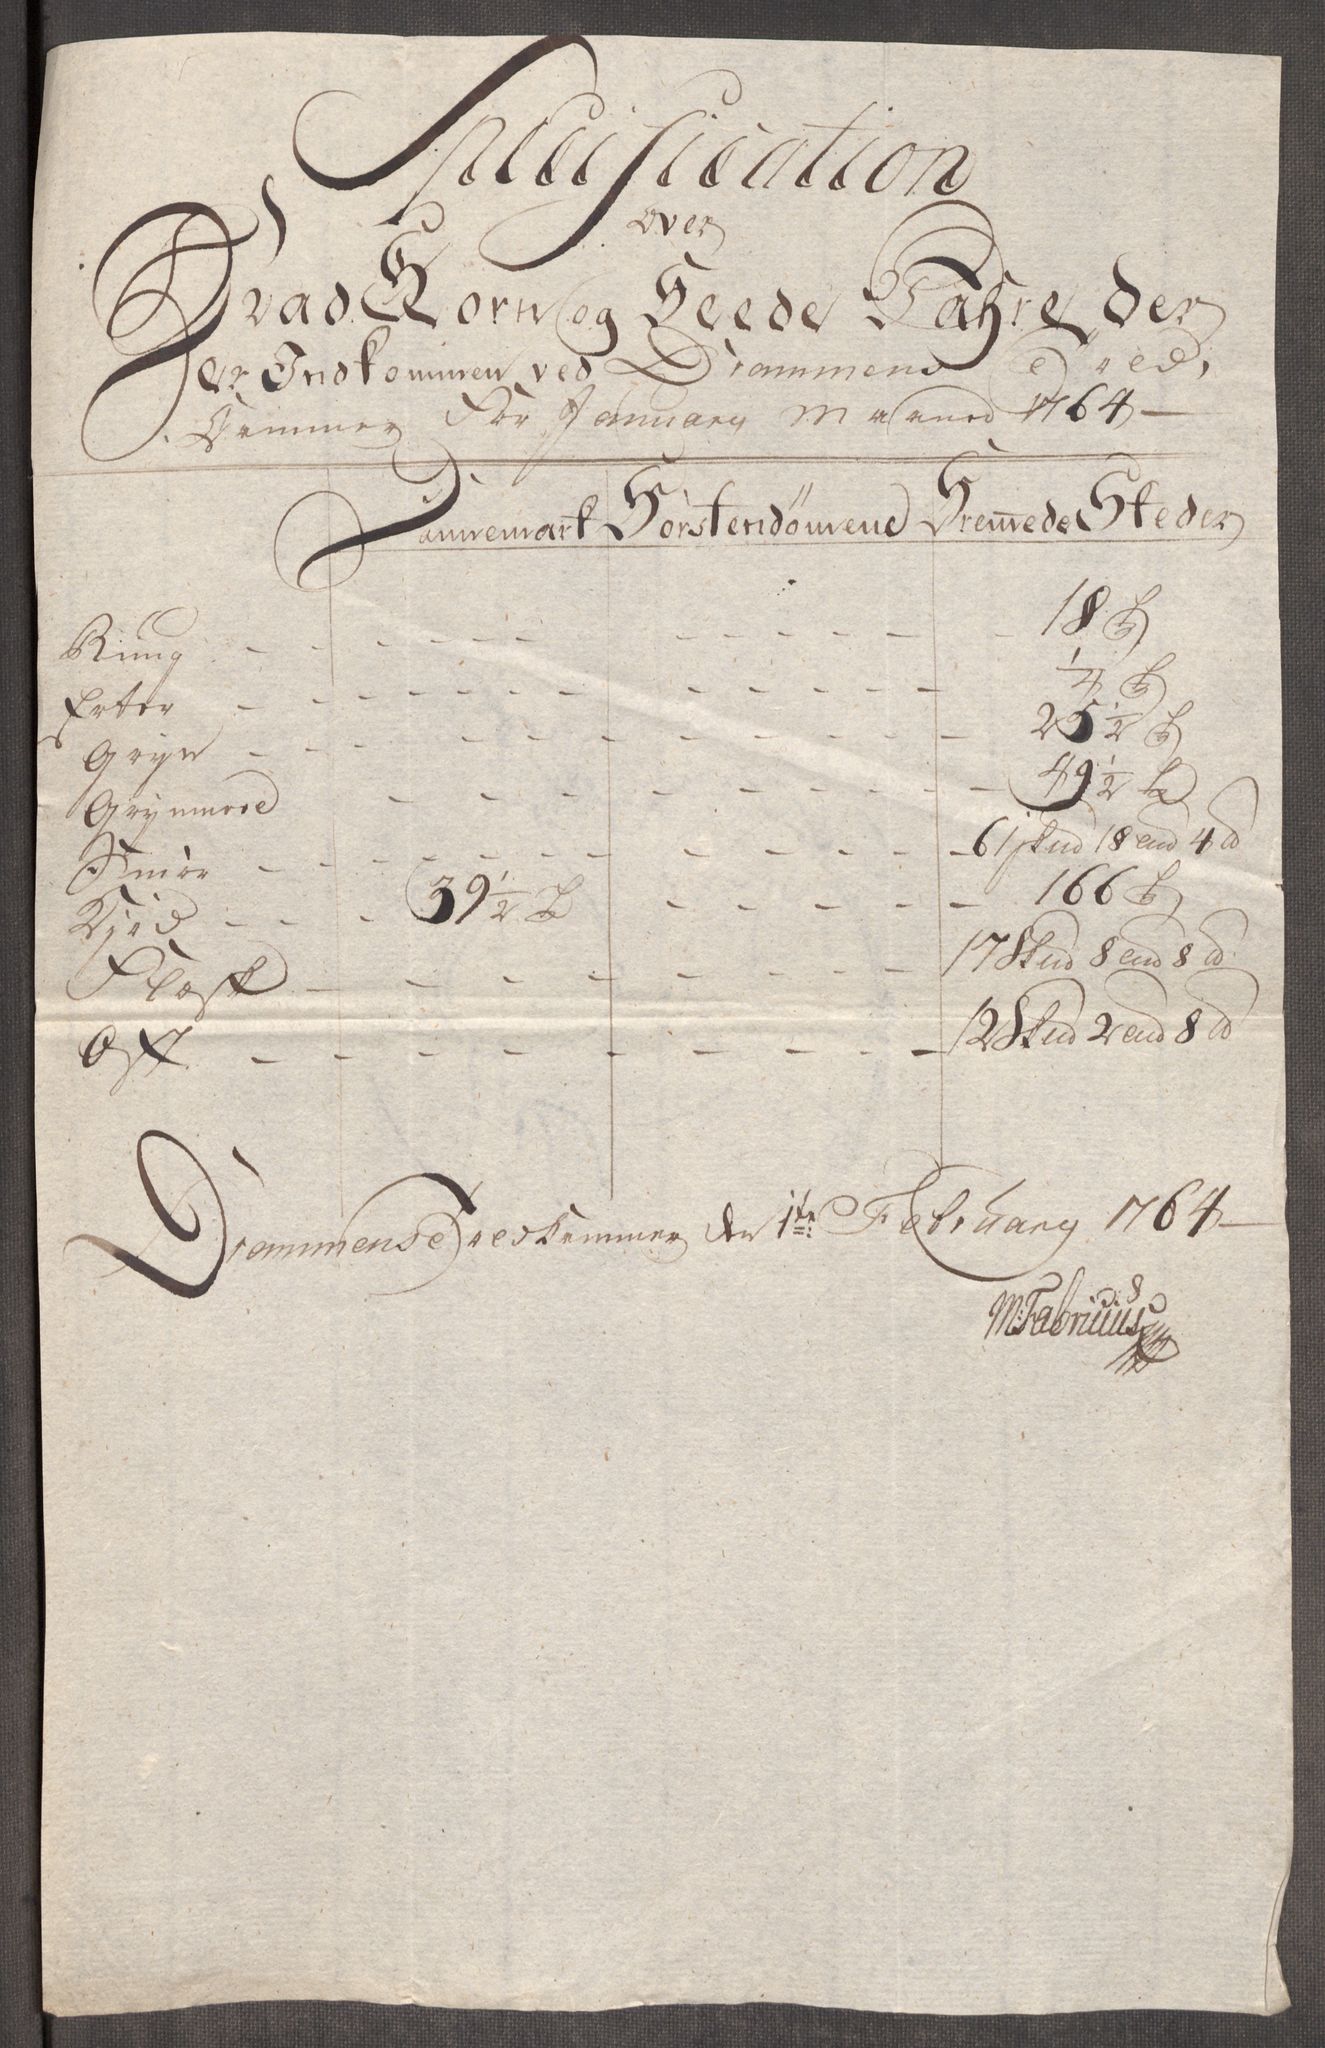 Specification
over
Hvad Korn og Feede Vahre der
er Indkommen ved Drammens Tred,
Kammer for January Maaned 1764
Dannemark Förstendömene Fremede Steder
Rung - - - 18 t
Erter - - - 1/4 t
Gryn - - - 25 1/2 t
Grynmeel - - - 49 1/2 t
Smör - - - 61 skud 18 lud 4 d
Kjöd - - - 39 1/2 t - - - 166 t
Flesk - - - 17 Skud 8 lud 8 d
Ost - - - 12 Skud 2 lud 8 d
Drammens Tredkammer den 1te February 1764
M: Fabricius